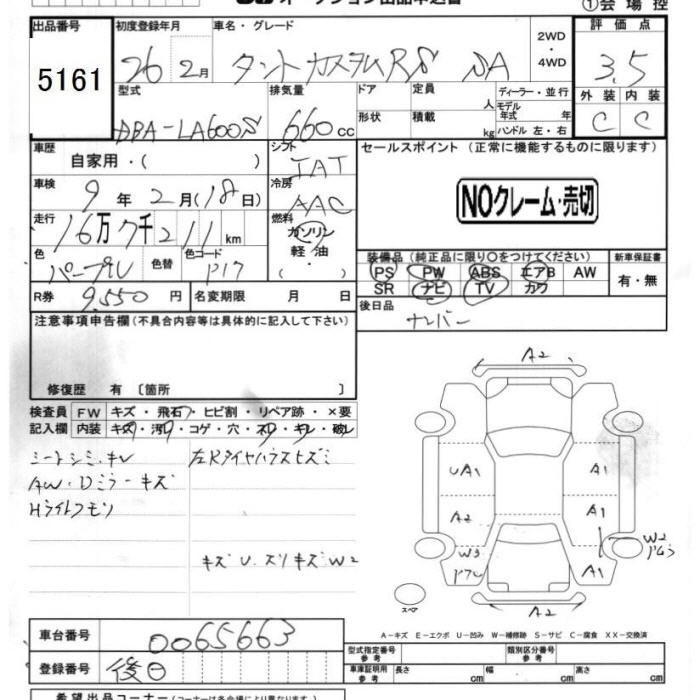 オークション出品申込書 ①会場控
出品番号 初度登録年月 車名・グレード 2WD・4WD 評価点
5161 26 2月 タントカスタムRS SA 3.5
型式 排気量 ドア 定員 人 ディーラー・並行 外装 内装
DBA-LA600S 660cc 形状 積載 kg モデル年式 年 ハンドル 左・右 C C
車歴 自家用・( ) シフト IAT セールスポイント (正常に機能するものに限ります)
車検 9年2月(18日) 冷房 AAC NOクレーム・売切
走行 16万7千211km 燃料 ガソリン 軽油 ( ・ )
色 パープル 色替 色コード P17 装備品 (純正品に限り〇をつけてください) 新車保証書
PS PW ABS エアB AW 有・無
SR ナビ TV カワ
R券 9,550円 名変期限 月 日 後日品 ナンバー
注意事項申告欄 (不具合内容等は具体的に記入して下さい)
修復歴 有 〔箇所 〕
検査員 FW キズ・飛石・ヒビ割・リペア跡・×要
記入欄 内装 キズ・汚レ・コゲ・穴・スレ・キレ・破レ
シートシミ・キレ 左Rタイヤハウスヒズミ
AW・Dミラーキズ
Hライトクモリ
キズ U スリキズ W2
A2
UA1 A1
A2 A1
W3 W2
A1
スペア A2
A-キズ E-エクボ U-凹み W-補修跡 S-サビ C-腐食 XX-交換済
車台番号 0065663
登録番号 後日
型式指定番号 参考 類別区分番号 参考
車庫証明用 参考 長さ cm 幅 cm 高さ cm
希望出品コーナー